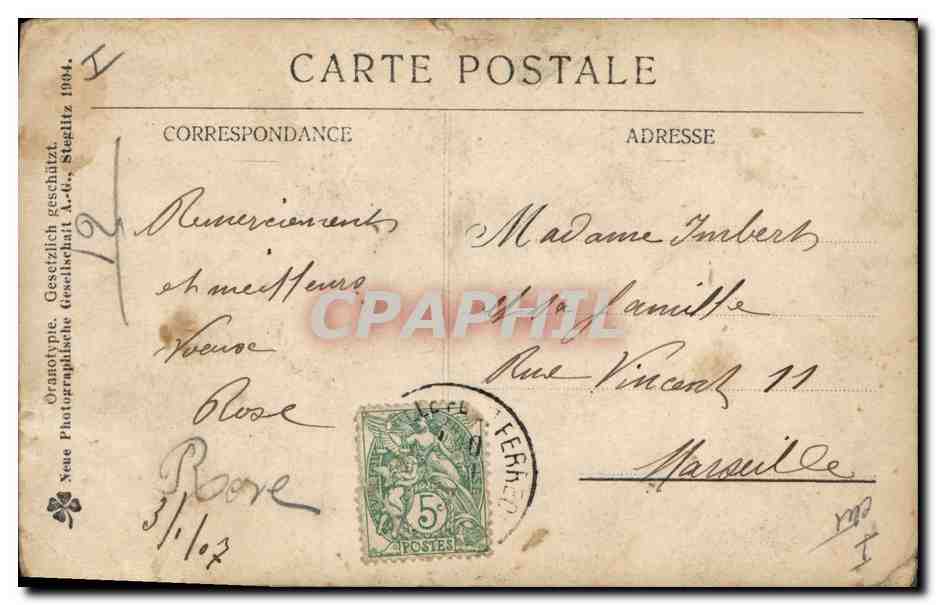 CARTE POSTALE
CORRESPONDANCE
ADRESSE
Remerciements
et meilleurs
Voeux
Rose
Rose
3/1/07
Madame Imbert
et sa famille
Rue Vincent 11
Marseille
5c
POSTES
FERRÉO
12
Oranotypie. Gesetzlich geschützt.
Neue Photographische Gesellschaft A.-G., Steglitz 1904.
CPAPHIL